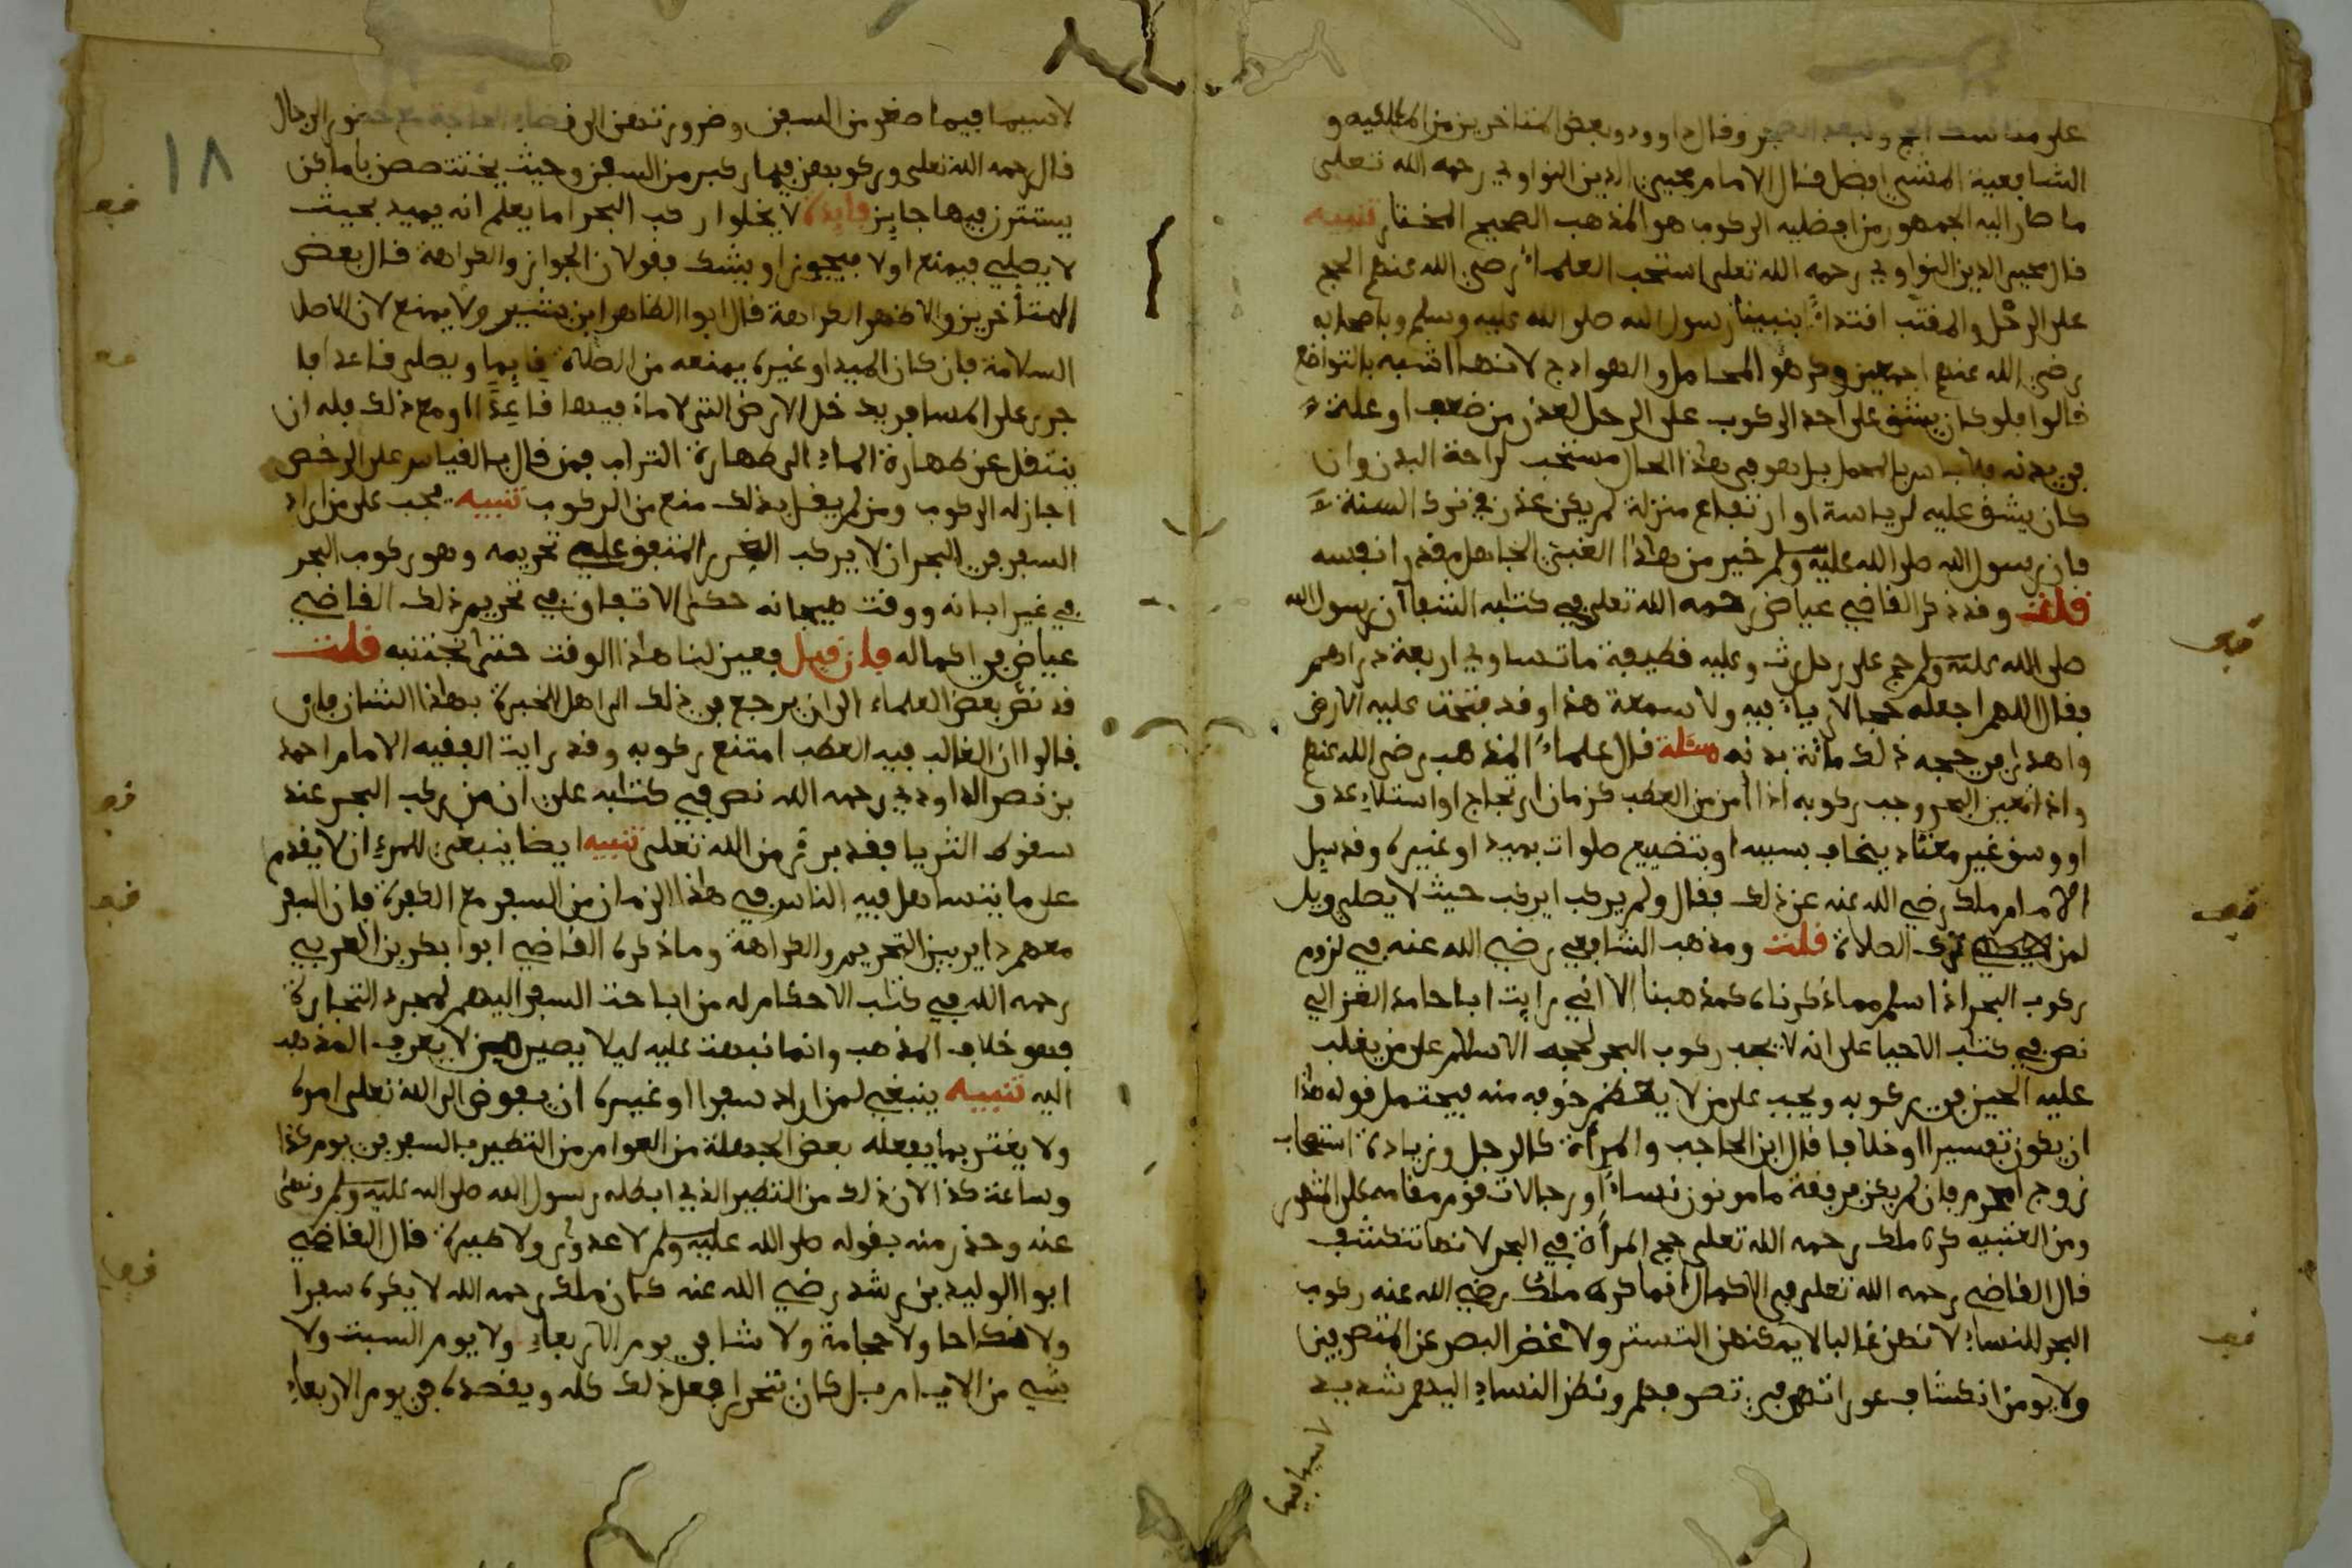 على مناسك الحج وقال داوود وبعض المتاخرين من المالكيه و
الشافعية المشي افضل قال الامام محيي الدين النواوي رحمه الله تعلى
ما صار اليه الجمهور من افضليه الركوب هو المذهب الصحيح المختار تنبيه
قال محيي الدين النواوي رحمه الله تعلى استحب العلماء رضي الله عنهم الحج
على الرحل والمقتب اقتداء بنبينا رسول الله صلى الله عليه وسلم وباصحابه
رضي الله عنهم اجمعين وكرهوا المحامل والهوادج لانها اشبه بالتواضع
قالوا فلو كان يشق على احد الركوب على الرحل لعذر من ضعف او علة
في بدنه فلا باس بالمحمل بل هو في هذا الحال مستحب لراحة البدن وان
كان يشق عليه لرياسة او ارتفاع منزلة لم يكن عذر في ترك السنة
فان رسول الله صلى الله عليه وسلم خير من هذا الجاهل مقدرا نفسه
قلت وقد ذكر القاضي عياض رحمه الله تعلى في كتابه الشفا ان رسول الله
صلى الله عليه وسلم حج على رحل رث وعليه قطيفة ما تساوي اربعة دراهم
فقال اللهم اجعله حجا لا رياء فيه ولا سمعة هذا وقد فتحت عليه الارض
واهدى في حجه ذلك مائة بدنه مسئلة قال علماء المذهب رضي الله عنهم
واذا تعين البحر وجب ركوبه اذا امن من العطب كزمان ارتجاج او استلاء عدو
او وسق غير معتاد يخاف بسببه او بتضييع صلوات بميد او غيره وقد سيل
الامام ملك رضي الله عنه عن ذلك فقال ولم يركب ايركب حيث لا يصلي ويل
لمن ترك الصلاة قلت ومذهب الشافعي رضي الله عنه في لزوم
ركوب البحر اذا سلم مما ذكرناه كمذهبنا الا اني رايت ابا حامد الغزالي
نص في كتاب الاحيا على انه لا يجب ركوب البحر لحجة الاسلام على من يغلب
عليه الحين في ركوبه ويجب على من لا يعظم خوفه منه فيحتمل قوله هذا
ان يكون تفسيرا او خلافا قال ابن الحاجب والمرأة كالرجل وزيادة استصحاب
زوج او محرم فان لم يكن فرفقة مامونون نساء او رجالا تقوم مقامه على المشهور
ومن العتبيه كره ملك رحمه الله تعلى حج المرأة في البحر لانها تنكشف
قال القاضي رحمه الله تعلى في الاكمال انما كره ملك رضي الله عنه ركوب
البحر للنساء لانهن غالبا لا يمكنهن التستر ولا غض البصر عن المتصرفين
ولا يومن انكشاف عوراتهم في تصرفهم ونظر النساء اليهم شديد
لاسيما فيما
١٨
لاسيما فيما صغر من السفن وضرورتهن الى قضاء الحاجة مع حضور الرجال
قال رحمه الله تعلى وركوبهن فيما كبر من السفن وحيث يختصصن باماكن
يستترن فيها جايز فايدة لا يخلوا راكب البحر اما يعلم انه يميد بحيث
لا يصلي فيمنع او لا فيجوز او يشك فقولان الجواز والكراهة قال بعض
المتأخرين والاظهر الكراهة قال ابوا الطاهر ابن بشير ولا يمنع لان الاصل
السلامة فان كان الميد او غيره يمنعه من الصلاة قايما ويصلي قاعدا فا
جرى على المسافر يدخل الارض التي لا ماء فيها قاعدا ومع ذلك فله ان
ينتقل عن طهارة الماء الى طهارة التراب فمن قال بالقياس على الرخص
اجاز له الركوب ومن لم يقل بذلك منع من الركوب تنبيه يجب على من اراد
السفر في البحر ان لا يركب المتفق على تحريمه وهو ركوب البحر
في غير ابانه ووقت هيجانه حكى الاتفاق في تحريم ذلك القاضي
عياض في اكماله فان قيل فعين لنا هذا الوقت حتى نجتنبه قلت
قد نص بعض العلماء الى ان يرجع في ذلك الى اهل الخبرة بهذا الشان فان
قالوا ان الغالب فيه العطب امتنع ركوبه وقد رايت الفقيه الامام احمد
بن نصر الداودي رحمه الله نص في كتابه على ان من ركب البحر عند
سقوط الثريا فقد بري من الله تعلى تنبيه ايضا ينبغي للمرء ان لا يقدم
على ما يتساهل فيه الناس في هذا الزمان من السفر مع الكفرة فان السفر
معهم داير بين التحريم والكراهة وما ذكره القاضي ابوا بكر بن العربي
رحمه الله في كتاب الاحكام له من اباحة السفر اليهم لمجرد التجارة
فهو خلاف المذهب وانما نبهت عليه ليلا يصير من لا يعرف المذهب
اليه تنبيه ينبغي لمن اراد سفرا او غيره ان يفوض الى الله تعلى امره
ولا يغتر بما يفعله بعض الجهلة من العوام من التطير بالسفر في يوم كذا
وساعة كذا لان ذلك من التطير الذي ابطله رسول الله صلى الله عليه وسلم ونهى
عنه وحذر منه بقوله صلى الله عليه وسلم لا عدوى ولا طيرة قال القاضي
ابوا الوليد بن رشد رضي الله عنه كان ملك رحمه الله لا يكره سفرا
ولا نكاحا ولا حجامة ولا شيا في يوم الاربعاء ولا يوم السبت ولا
شي من الايام بل كان يتحرى فعل ذلك كله ويقصده في يوم الاربعاء